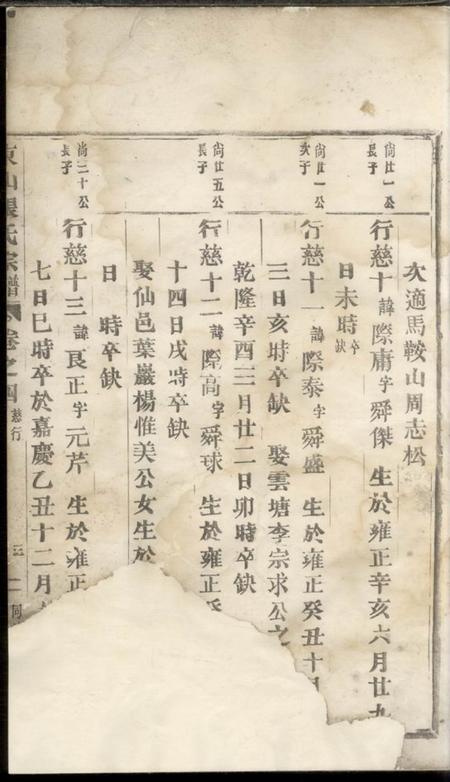 次適馬鞍山周志松
尚仕一公
長子
行慈十諱際庸字舜傑 生於雍正辛亥六月廿九
日未時卒缺
尚仕一公
次子
行慈十一諱際泰字舜盛 生於雍正癸丑十月
三日亥時卒缺 娶雲塘李宗求公之
乾隆辛酉三月廿二日卯時卒缺
尚仕五公
長子
行慈十二諱際高字舜球 生於雍正
十四日戌時卒缺
娶仙邑葉巖楊惟美公女生於
日 時卒缺
尚二十公
長子
行慈十三諱良正字元芹 生於雍正
七日巳時卒於嘉慶乙丑十二月
東山張氏宗譜 卷之四 慈行